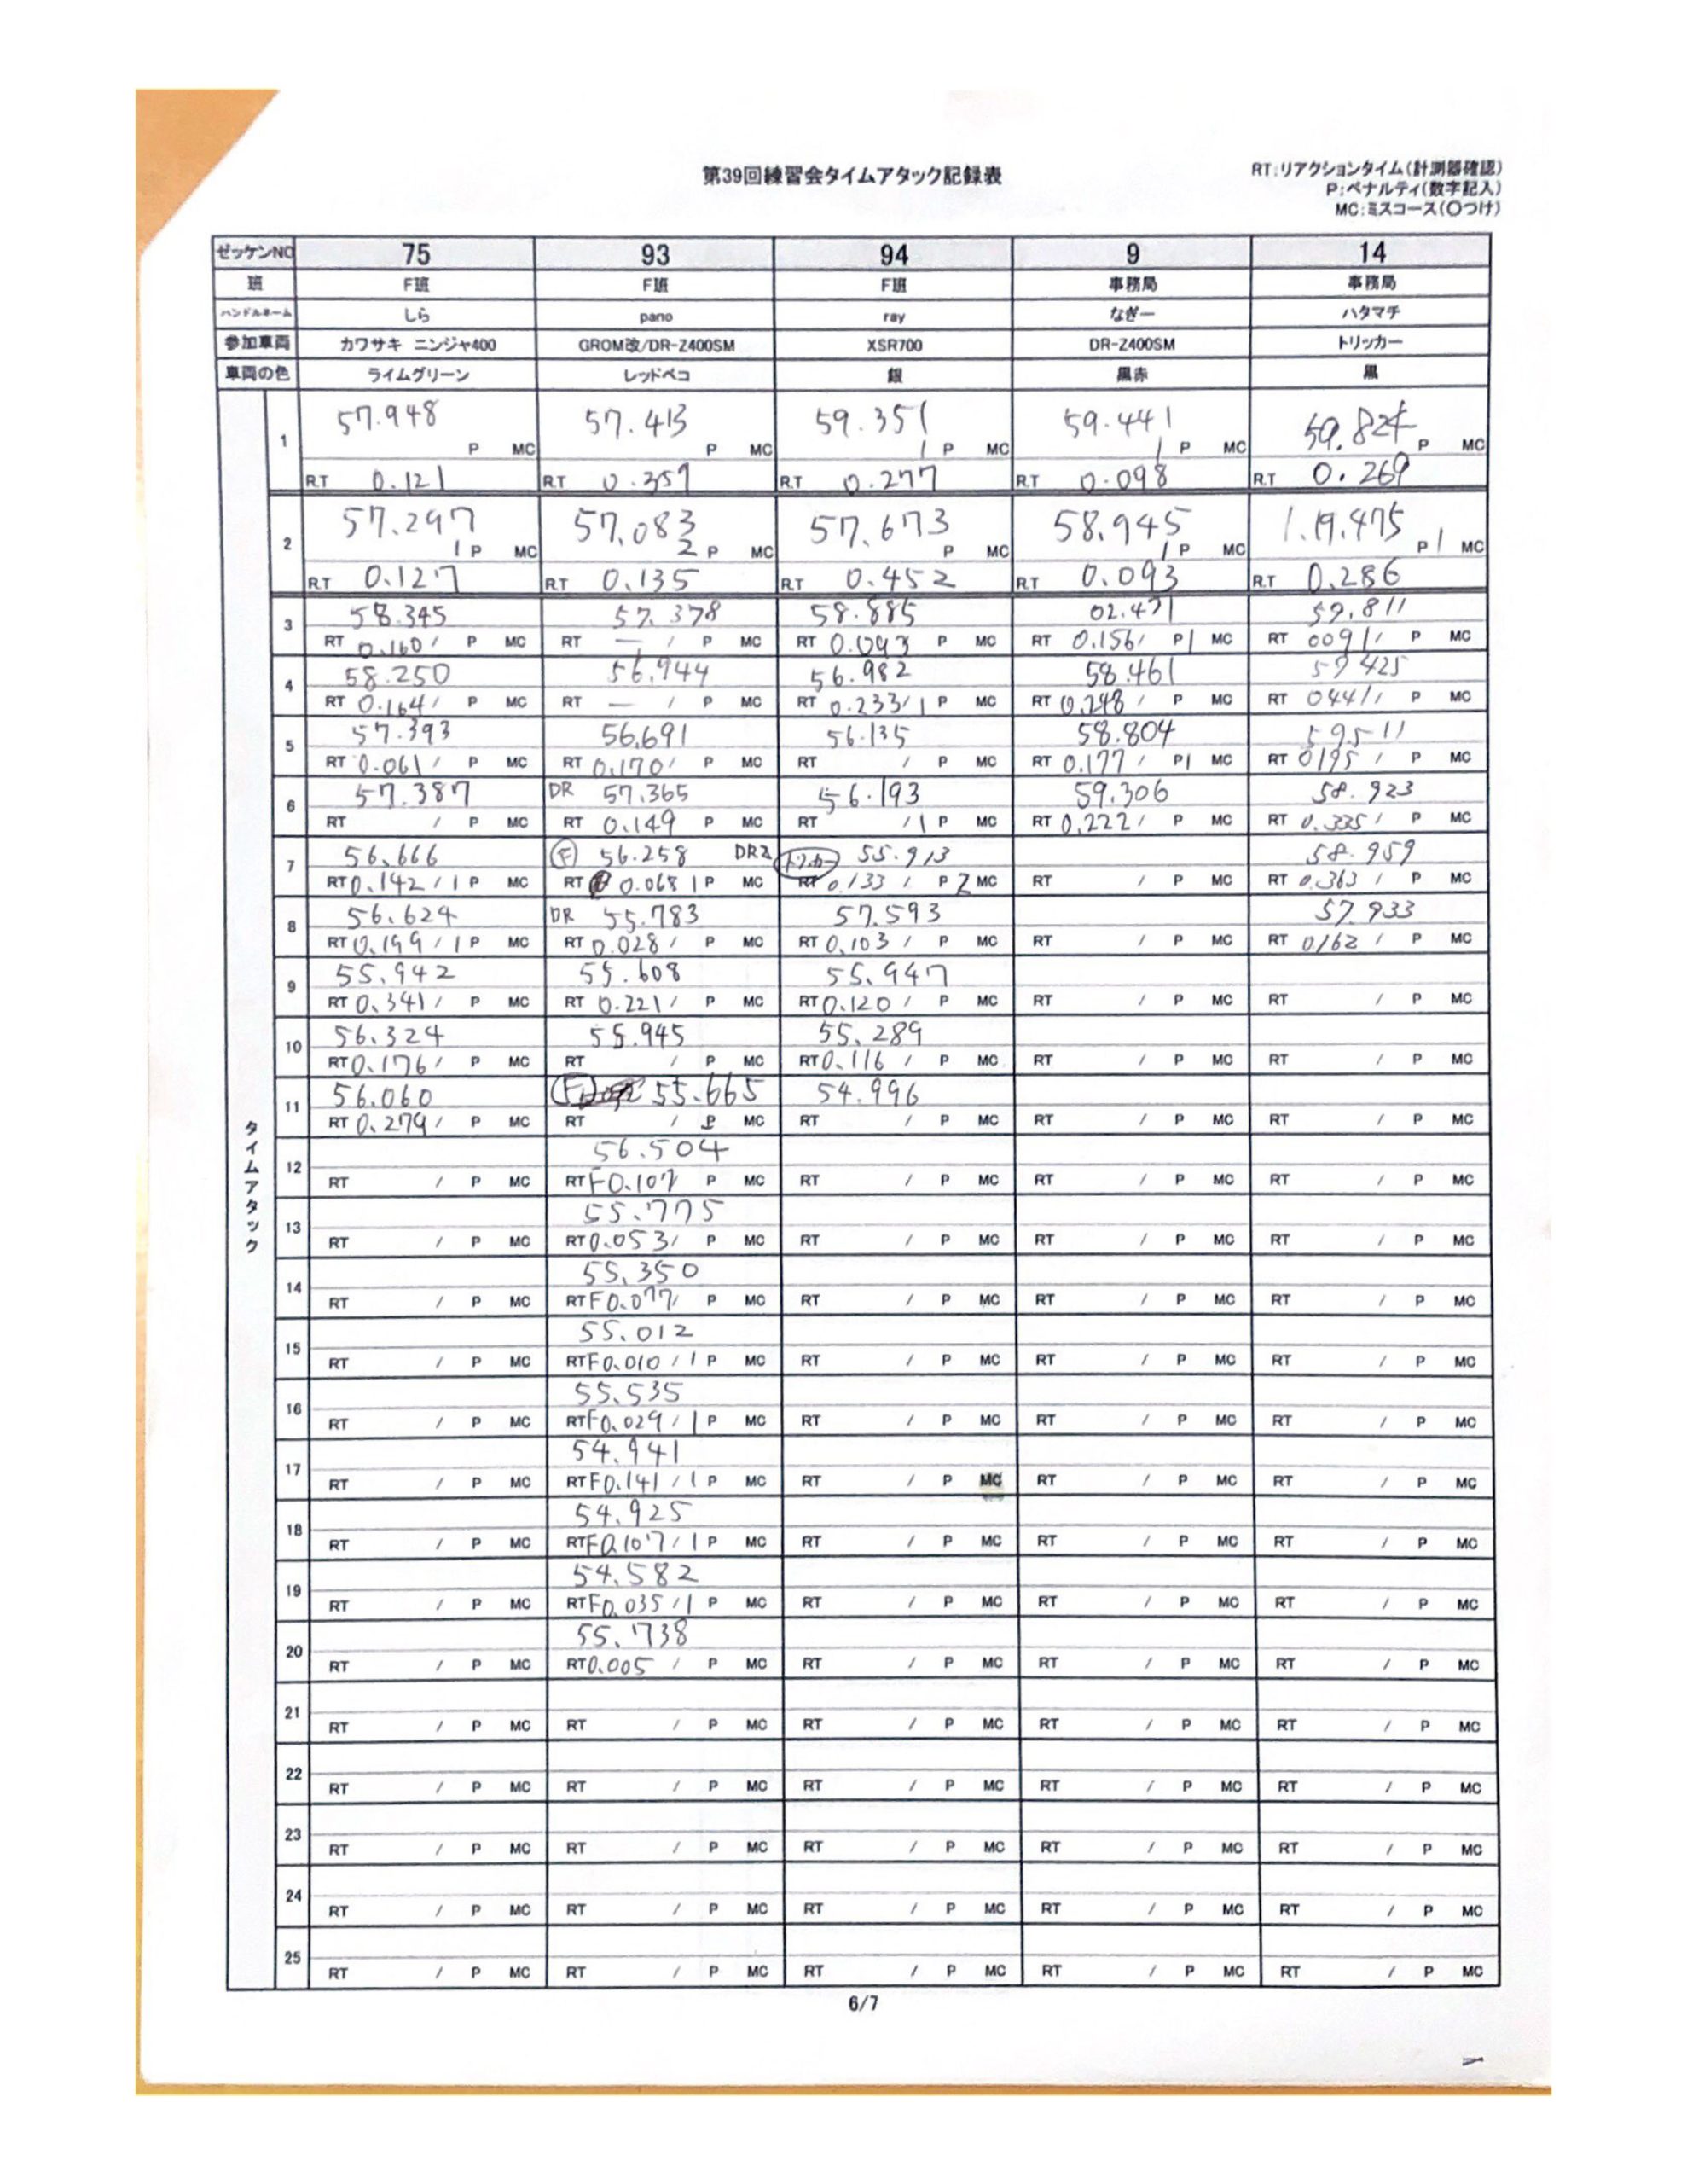 第39回練習会タイムアタック記録表
RT:リアクションタイム(計測器確認)
P:ペナルティ(数字記入)
MC:ミスコース(〇つけ)
ゼッケンNO 75 93 94 9 14
班 F班 F班 F班 事務局 事務局
ハンドルネーム しら pano ray なぎー ハタマチ
参加車両 カワサキ ニンジャ400 GROM改/DR-Z400SM XSR700 DR-Z400SM トリッカー
車両の色 ライムグリーン レッドペコ 銀 黒赤 黒
タイムアタック
57.948 57.413 59.351 59.441 59.824
1 P MC P MC 1 P MC 1 P MC P MC
RT 0.121 RT 0.357 RT 0.277 RT 0.098 RT 0.269
57.297 57.083 57.673 58.945 1.19.475
2 1 P MC 2 P MC P MC 1 P MC P 1 MC
RT 0.127 RT 0.135 RT 0.452 RT 0.093 RT 0.286
3 58.345 57.378 58.885 02.471 59.811
RT 0.160 / P MC RT — / P MC RT 0.093 P MC RT 0.156 / P1 MC RT 0091 / P MC
4 58.250 56.944 56.982 58.461 59 425
RT 0.164 / P MC RT — / P MC RT 0.233 / 1 P MC RT 0.248 / P MC RT 0441 / P MC
5 57.393 56.691 56.135 58.804 595 11
RT 0.061 / P MC RT 0.170 / P MC RT / P MC RT 0.177 / P1 MC RT 0195 / P MC
6 57.387 DR 57.365 56.193 59.306 58.923
RT / P MC RT 0.149 P MC RT / 1 P MC RT 0.222 / P MC RT 0.335 / P MC
7 56.666 F 56.258 DRZ トリッカー 55.913 58.959
RT 0.142 / 1 P MC RT 0.068 1 P MC RT 0.133 / P 2 MC RT / P MC RT 0.363 / P MC
8 56.624 DR 55.783 57.593 57.933
RT 0.199 / 1 P MC RT 0.028 / P MC RT 0.103 / P MC RT / P MC RT 0162 / P MC
9 55.942 55.608 55.947
RT 0.341 / P MC RT 0.221 / P MC RT 0.120 / P MC RT / P MC RT / P MC
10 56.324 55.945 55.289
RT 0.176 / P MC RT / P MC RT 0.116 / P MC RT / P MC RT / P MC
11 56.060 F 55.665 54.996
RT 0.279 / P MC RT / P MC RT / P MC RT / P MC RT / P MC
12 56.504
RT / P MC RT F0.107 P MC RT / P MC RT / P MC RT / P MC
13 55.775
RT / P MC RT 0.053 / P MC RT / P MC RT / P MC RT / P MC
14 55.350
RT / P MC RT F0.077 / P MC RT / P MC RT / P MC RT / P MC
15 55.012
RT / P MC RT F0.010 / 1 P MC RT / P MC RT / P MC RT / P MC
16 55.535
RT / P MC RT F0.029 / 1 P MC RT / P MC RT / P MC RT / P MC
17 54.941
RT / P MC RT F0.141 / 1 P MC RT / P MC RT / P MC RT / P MC
18 54.925
RT / P MC RT F0.107 / 1 P MC RT / P MC RT / P MC RT / P MC
19 54.582
RT / P MC RT F0.035 / 1 P MC RT / P MC RT / P MC RT / P MC
20 55.738
RT / P MC RT 0.005 / P MC RT / P MC RT / P MC RT / P MC
21
RT / P MC RT / P MC RT / P MC RT / P MC RT / P MC
22
RT / P MC RT / P MC RT / P MC RT / P MC RT / P MC
23
RT / P MC RT / P MC RT / P MC RT / P MC RT / P MC
24
RT / P MC RT / P MC RT / P MC RT / P MC RT / P MC
25
RT / P MC RT / P MC RT / P MC RT / P MC RT / P MC
6/7